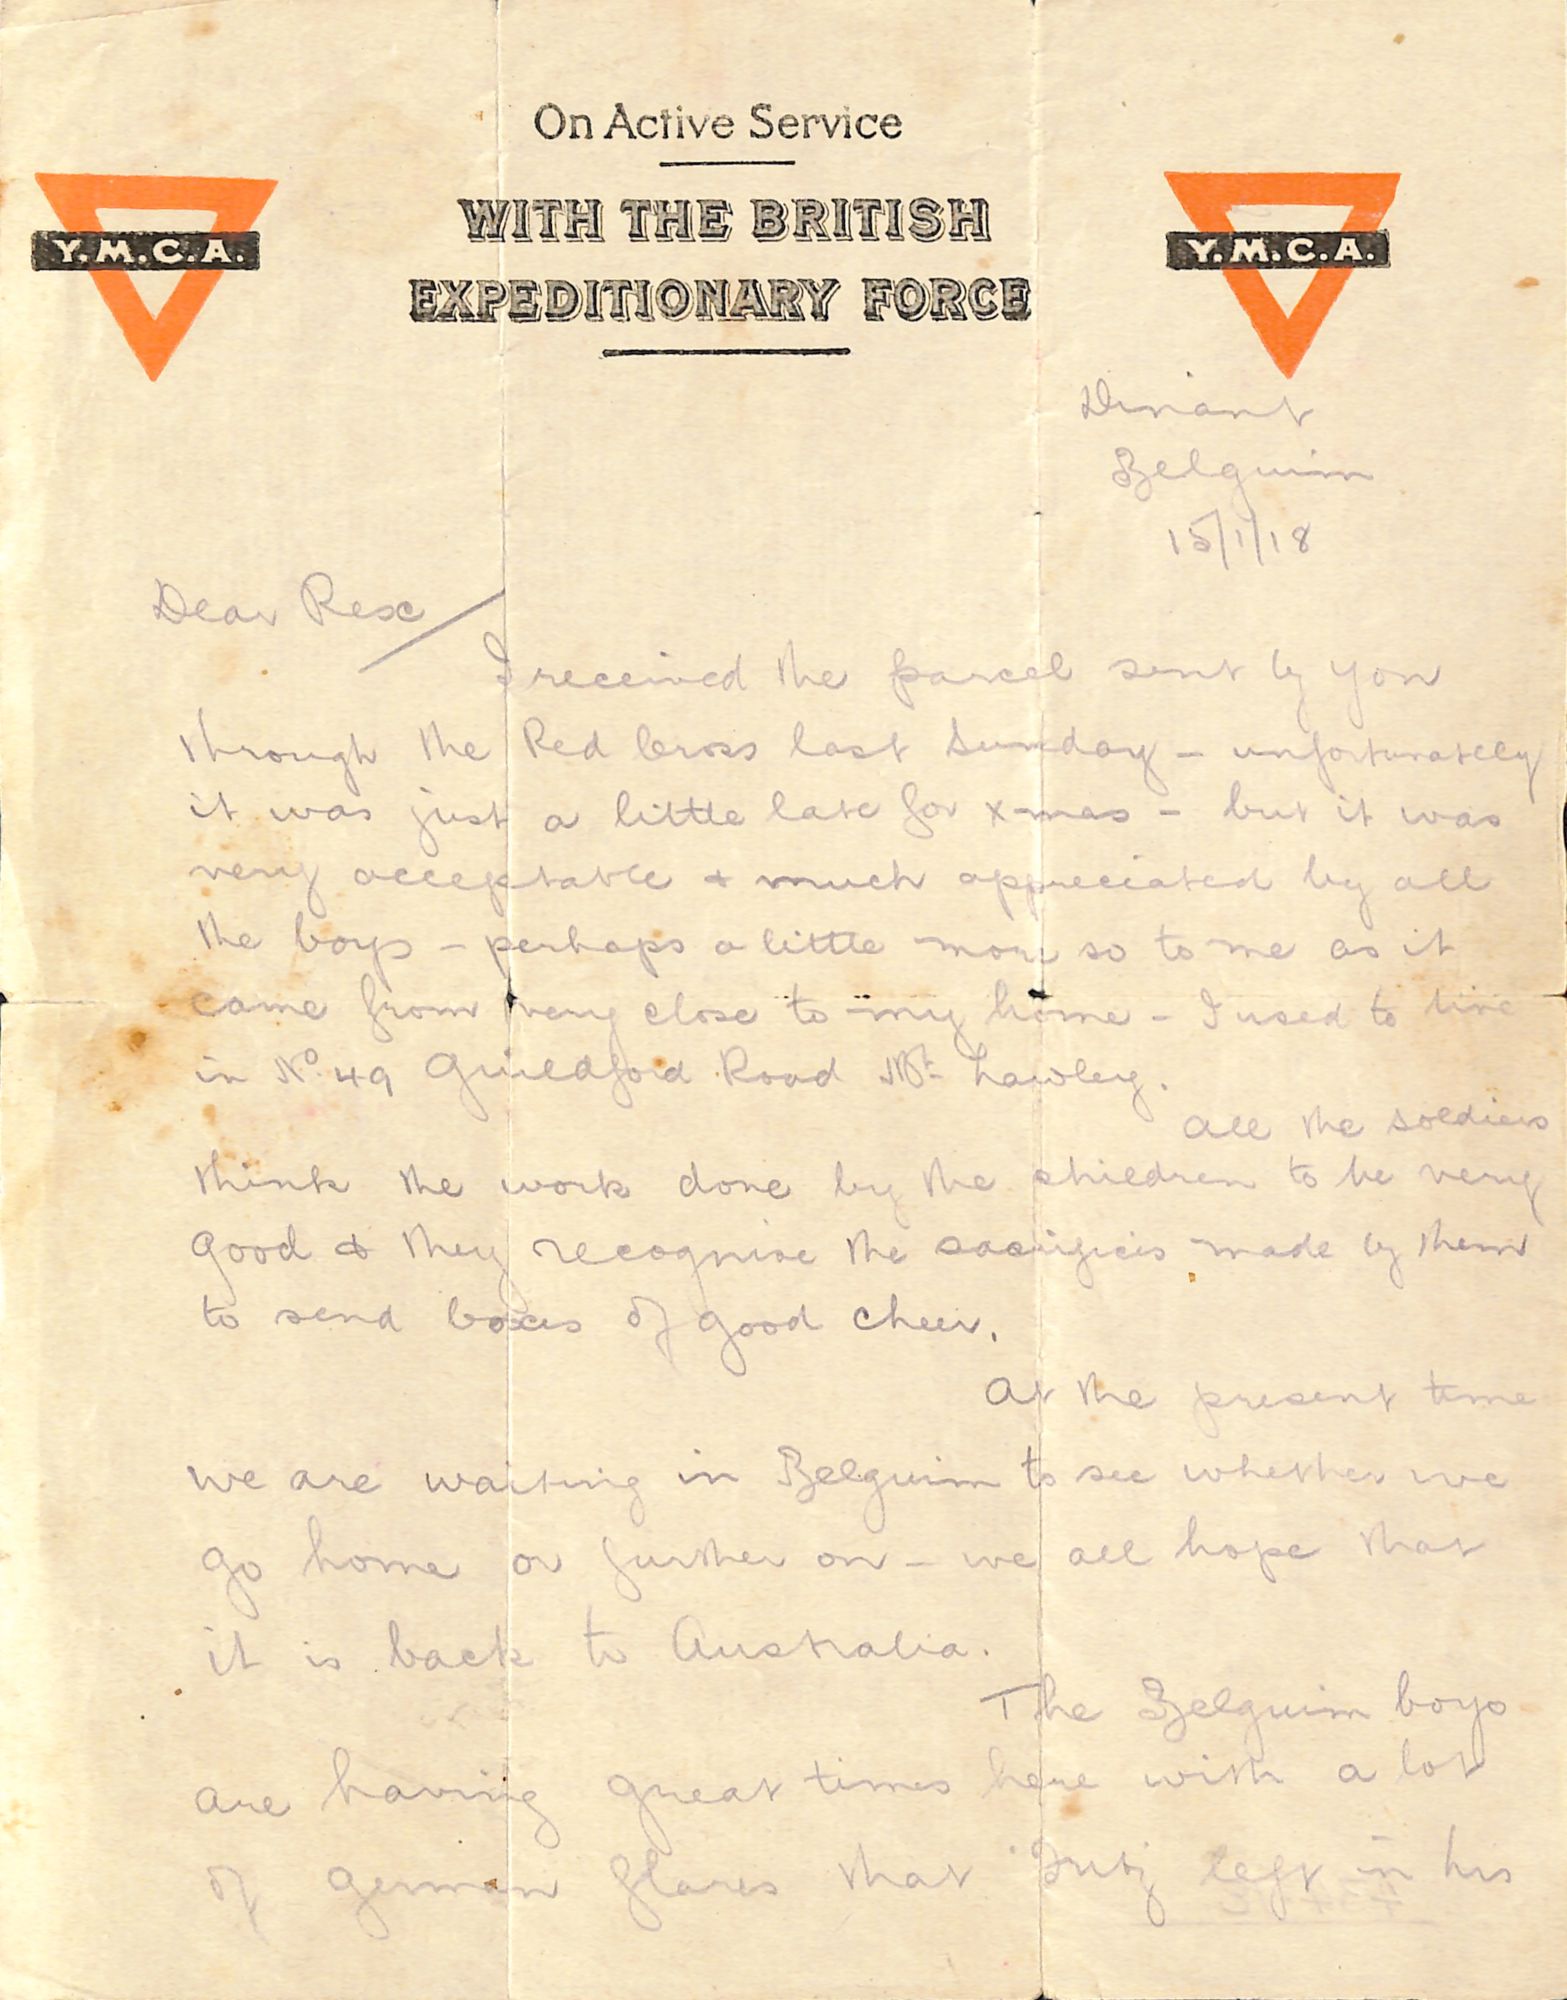 On Active Service
WITH THE BRITISH
EXPEDITIONARY FORCE
Y.M.C.A.
Y.M.C.A.
Dinant
Belguim
15/1/18
Dear Rex
I received the parcel sent by you
through the Red Cross last Sunday – unfortunately
it was just a little late for X-mas – but it was
very acceptable & much appreciated by all
the boys – perhaps a little more so to me as it
came from very close to my home – I used to live
in No. 49 Guildford Road Mt. Lawley.
All the soldiers
think the work done by the children to be very
good & they recognise the sacrifices made by them
to send boxes of good cheer.
At the present time
we are waiting in Belguim to see whether we
go home or further on – we all hope that
it is back to Australia.
The Belguim boys
are having great times here with a lot
of German flares that "Fritz left in his